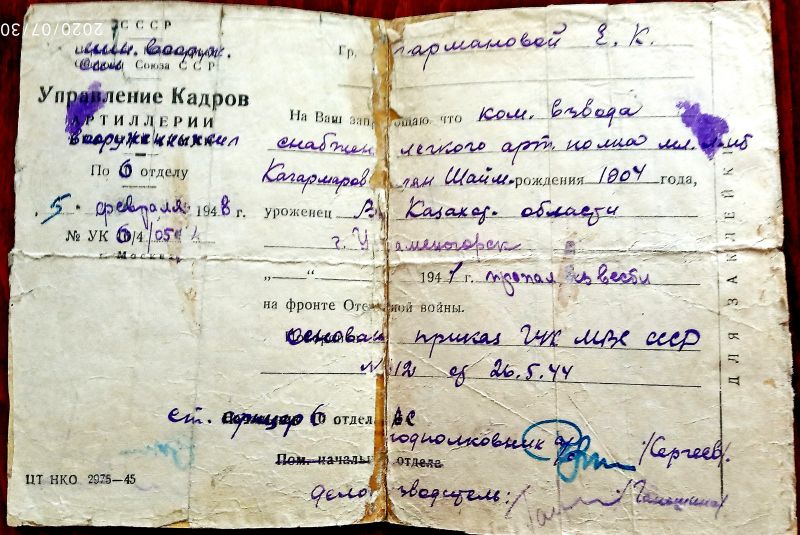 2020/07/30
СССР
мин. вооруж.
Союза ССР
сил
Управление Кадров
АРТИЛЛЕРИИ
вооруженных сил
По 6 отделу
5 февраля 1948 г.
№ УК 6/4/
г. Москва
Гр. гармановой Е. К.
На Ваш зап ощаю, что ком. взвода
снабжен легкого арт. полка мл.
Кагарманов ган Шайм. рождения 1904 года,
уроженец В Казахст. области
г. У каменогорск
„ “ 1941 г. пропал без вести
на фронте Оте ной войны.
Основан приказ ГУК МВС СССР
№ 012 от 26.5.44
ст. офицер 6 отдела ВС
подполковник /Сергеев/
Пом. начальн отдела
делопроизводитель:
ЦТ НКО 2975—45
ДЛЯ ЗАКЛЕЙКИ